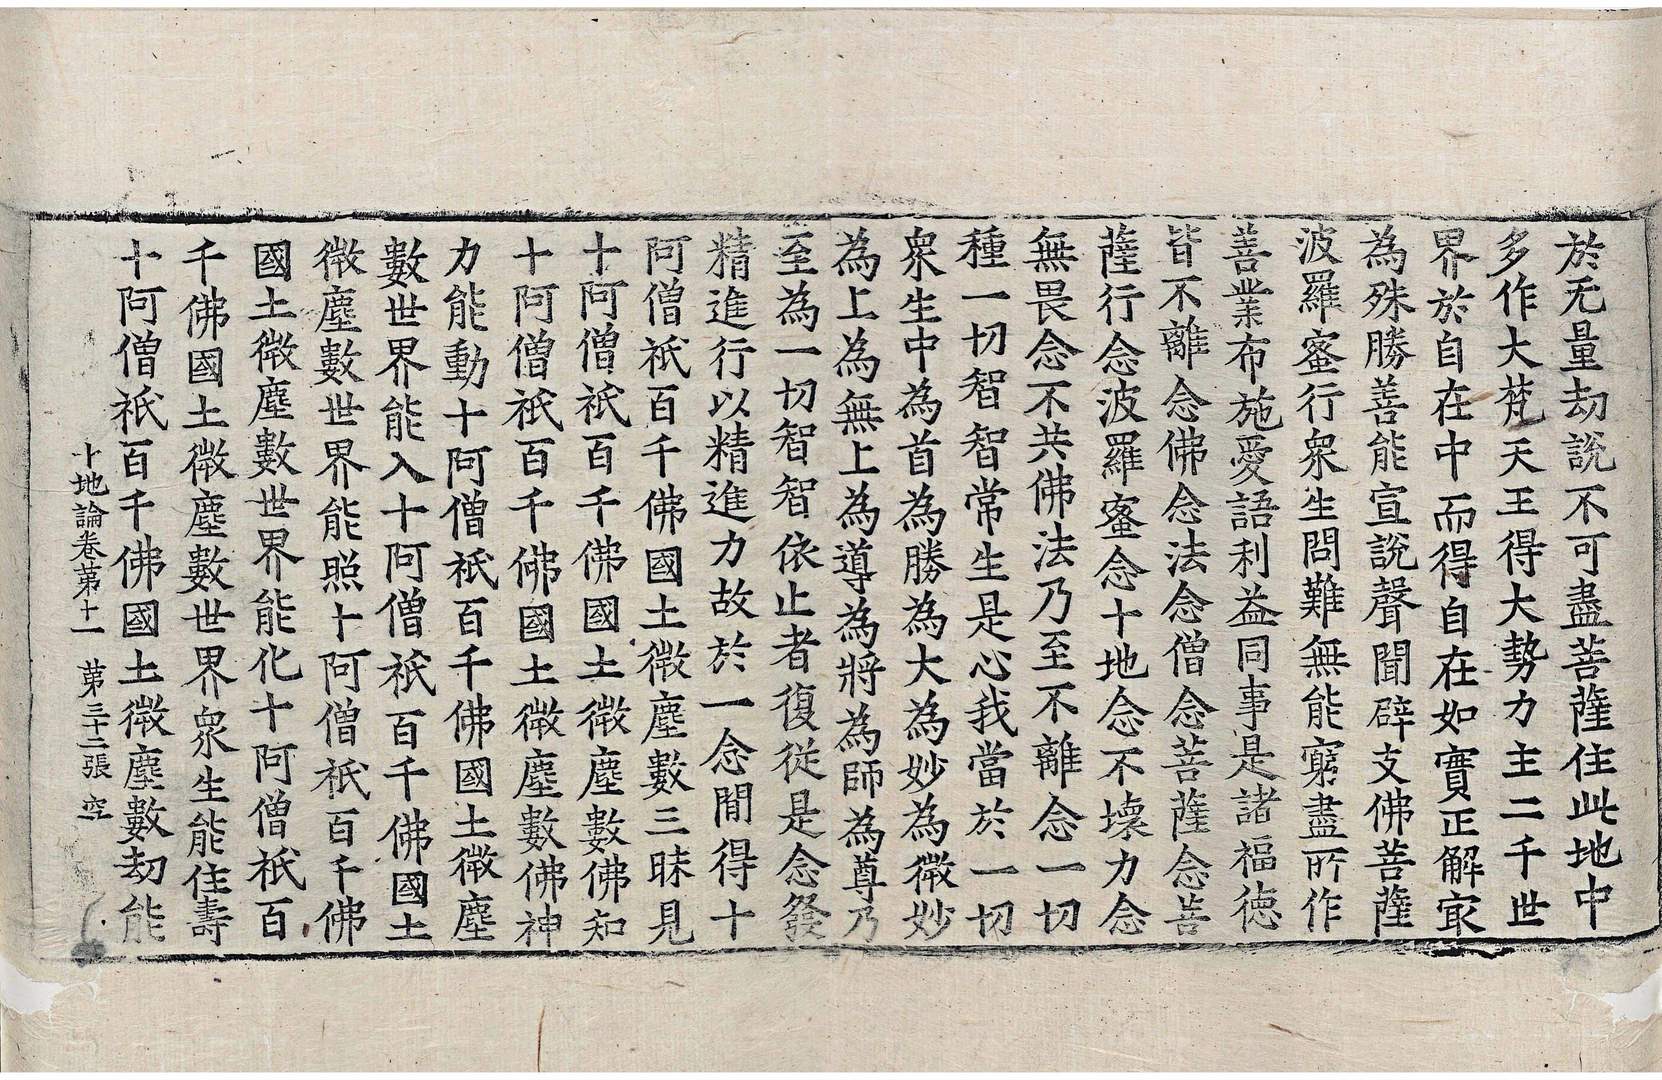 於无量劫說不可盡菩薩住此地中
多作大梵天王得大勢力主二千世
界於自在中而得自在如實正解㝡
為殊勝善能宣說聲聞辟支佛菩薩
波羅蜜行衆生問難無能窮盡所作
善業布施愛語利益同事是諸福德
皆不離念佛念法念僧念菩薩念菩
薩行念波羅蜜念十地念不壞力念
無畏念不共佛法乃至不離念一切
種一切智智常生是心我當於一切
衆生中為首為勝為大為妙為微妙
為上為無上為導為將為師為尊乃
至為一切智智依止者復從是念發
精進行以精進力故於一念閒得十
阿僧祇百千佛國土微塵數三昧見
十阿僧祇百千佛國土微塵數佛知
十阿僧祇百千佛國土微塵數佛神
力能動十阿僧祇百千佛國土微塵
數世界能入十阿僧祇百千佛國土
微塵數世界能照十阿僧祇百千佛
國土微塵數世界能化十阿僧祇百
千佛國土微塵數世界衆生能住壽
十阿僧祇百千佛國土微塵數劫能
十地論卷第十一 第三十二張 空